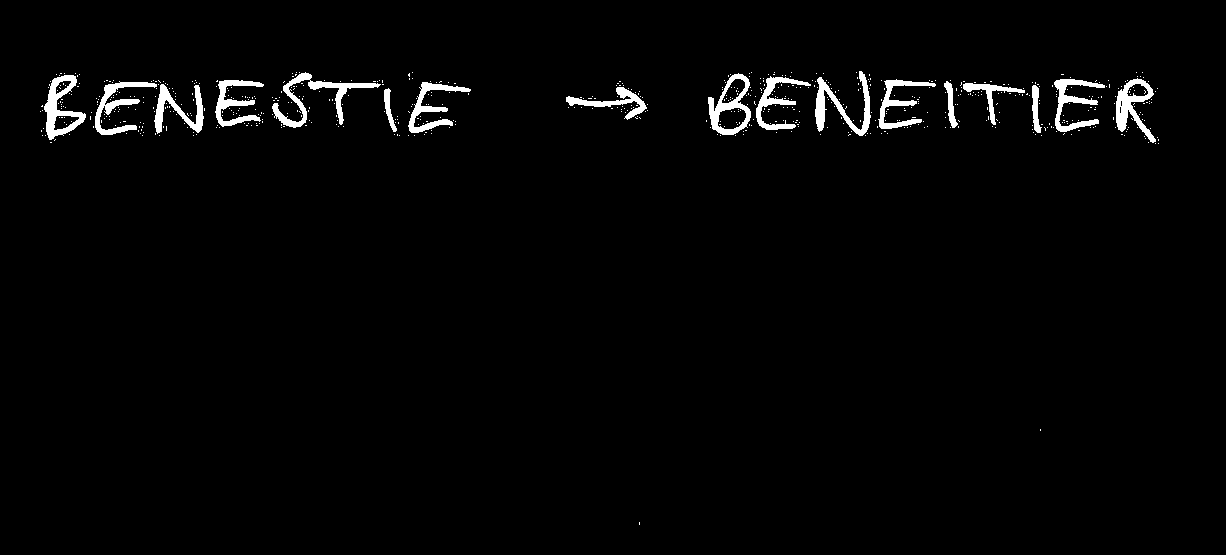 BENESTIE → BENEITIER